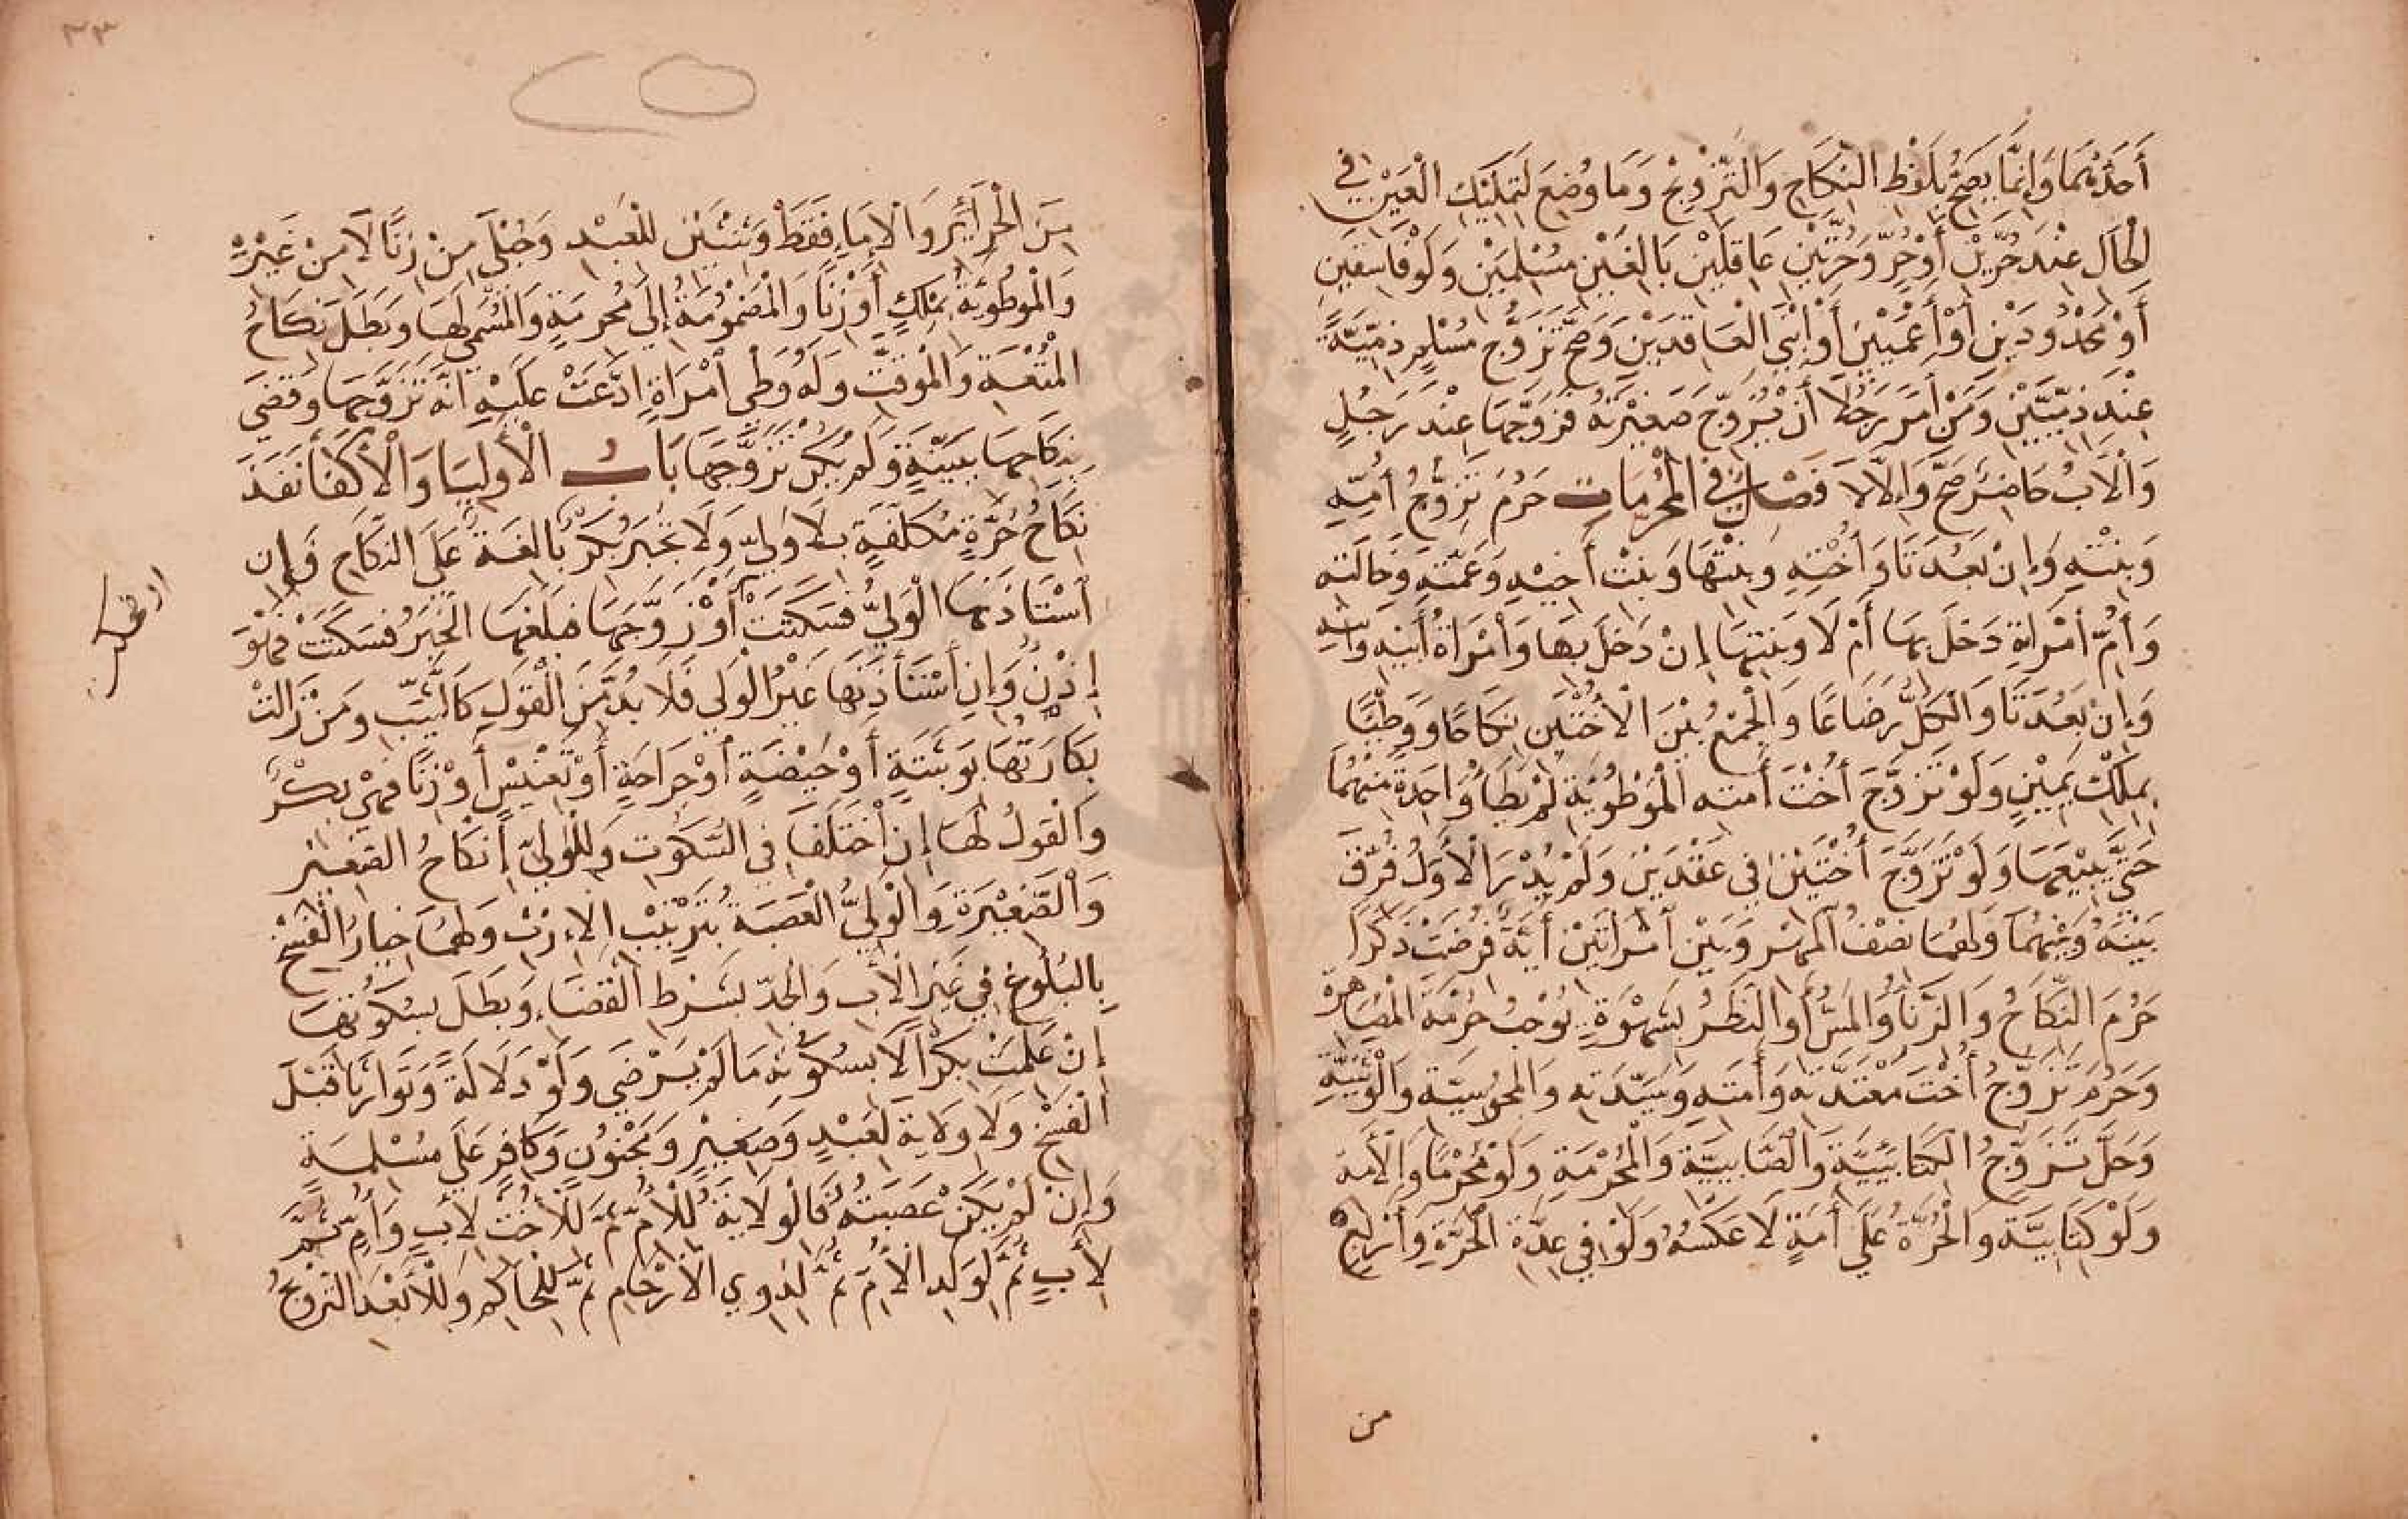 أَحَدُهُمَا وَإِنَّمَا يَصِحُّ بِلَفْظِ النِّكَاحِ وَالتَّزْوِيْجِ وَمَا وُضِعَ لِتَمْلِيْكِ الْعَيْنِ فِي
الْحَالِ عِنْدَ حُرَّيْنِ أَوْ حُرٍّ وَحُرَّتَيْنِ عَاقِلَيْنِ بَالِغَيْنِ مُسْلِمَيْنِ وَلَوْ فَاسِقَيْنِ
أَوْ مَحْدُودَيْنِ أَوْ أَعْمَيَيْنِ أَوْ ابْنَيِ الْعَاقِدَيْنِ وَصَحَّ تَزَوُّجُ مُسْلِمٍ ذِمِّيَّةً
عِنْدَ ذِمِّيَّيْنِ وَمَنْ أَمَرَ رَجُلًا أَنْ يُزَوِّجَ صَغِيْرَتَهُ فَزَوَّجَهَا عِنْدَ رَجُلٍ
وَالْأَبُ حَاضِرٌ صَحَّ وَإِلَّا لَا فَصْلٌ فِي الْمُحَرَّمَاتِ حَرُمَ تَزَوُّجُ أُمِّهِ
وَبِنْتِهِ وَإِنْ بَعُدَتَا وَأُخْتِهِ وَبِنْتِهَا وَبِنْتِ أَخِيْهِ وَعَمَّتِهِ وَخَالَتِهِ
وَأُمِّ امْرَأَةٍ دَخَلَ بِهَا أَمْ لَا وَبِنْتِهَا إِنْ دَخَلَ بِهَا وَامْرَأَةُ أَبِيْهِ وَابْنِهِ
وَإِنْ بَعُدَتَا وَالْكُلُّ رَضَاعًا وَالْجَمْعُ بَيْنَ الْأُخْتَيْنِ نِكَاحًا وَوَطْئًا
بِمِلْكِ يَمِيْنٍ وَلَوْ تَزَوَّجَ أُخْتَ أَمَتِهِ الْمَوْطُوْءَةِ لَمْ يَطَأْ وَاحِدَةً مِنْهُمَا
حَتَّى يَبِيْعَهَا وَلَوْ تَزَوَّجَ أُخْتَيْنِ فِي عَقْدَيْنِ وَلَمْ يُدْرَ الْأَوَّلُ فُرِّقَ
بَيْنَهُ وَبَيْنَهُمَا وَلَهُمَا نِصْفُ الْمَهْرِ وَبَيْنَ امْرَأَتَيْنِ أَيَّةٌ فُرِضَتْ ذَكَرًا
حَرُمَ النِّكَاحُ وَالزِّنَا وَالْمَسُّ وَالنَّظَرُ بِشَهْوَةٍ يُوْجِبُ حُرْمَةَ الْمُصَاهَرَةِ
وَحَرُمَ تَزَوُّجُ أُخْتِ مُعْتَدَّتِهِ وَأَمَتِهِ وَسَيِّدَتِهِ وَالْمَجُوْسِيَّةِ وَالْوَثَنِيَّةِ
وَحَلَّ تَزَوُّجُ الْكِتَابِيَّةِ وَالصَّابِيَّةِ وَالْمُحْرِمَةِ وَلَوْ مُحْرِمًا وَالْأَمَةِ
وَلَوْ كِتَابِيَّةً وَالْحُرَّةِ عَلَى أَمَةٍ لَا عَكْسُهُ وَلَوْ فِي عِدَّةِ الْحُرَّةِ وَأَرْبَعٍ
من
٣٣
مِنَ الْحَرَائِرِ وَالْإِمَاءِ فَقَطْ وَثِنْتَيْنِ لِلْعَبْدِ وَحُبْلَى مِنْ زِنًا لَا مِنْ غَيْرِهِ
وَالْمَوْطُوْءَةِ بِمِلْكٍ أَوْ زِنًا وَالْمَضْمُوْمَةُ إِلَى مُحَرَّمَةٍ وَالْمُسَمَّى لَهَا وَبَطَلَ نِكَاحُ
الْمُتْعَةِ وَالْمُوَقَّتِ وَلَهُ وَطْىُ امْرَأَةٍ ادَّعَتْ عَلَيْهِ أَنَّهُ تَزَوَّجَهَا وَقُضِيَ
بِنِكَاحِهَا بِبَيِّنَةٍ وَلَمْ يَكُنْ تَزَوَّجَهَا بَابُ الْأَوْلِيَا وَالْأَكْفَا نَفَذَ
نِكَاحُ حُرَّةٍ مُكَلَّفَةٍ بِلَا وَلِيٍّ وَلَا تُجْبَرُ بِكْرٌ بَالِغَةٌ عَلَى النِّكَاحِ فَإِنِ
اسْتَأْذَنَهَا الْوَلِيُّ فَسَكَتَتْ أَوْ زَوَّجَهَا فَبَلَغَهَا الْخَبَرُ فَسَكَتَتْ فَهُوَ
إِذْنٌ وَإِنِ اسْتَأْذَنَهَا غَيْرُ الْوَلِيِّ فَلَا بُدَّ مِنَ الْقَوْلِ كَالثَّيِّبِ وَمَنْ زَالَتْ
بَكَارَتُهَا بِوَثْبَةٍ أَوْ حَيْضَةٍ أَوْ جِرَاحَةٍ أَوْ تَعْنِيْسٍ أَوْ زِنًا فَهِيَ بِكْرٌ
وَالْقَوْلُ لَهَا إِنِ اخْتَلَفَا فِي السُّكُوْتِ وَلِلْوَلِيِّ إِنْكَاحُ الصَّغِيْرِ
وَالصَّغِيْرَةِ وَالْوَلِيُّ الْعَصَبَةُ بِتَرْتِيْبِ الْإِرْثِ وَلَهُمَا خِيَارُ الْفَسْخِ
بِالْبُلُوْغِ فِي غَيْرِ الْأَبِ وَالْجَدِّ بِشَرْطِ الْقَضَاءِ وَبَطَلَ بِسُكُوْتِهَا
إِنْ عَلِمَتْ بِكْرًا لَا بِسُكُوْتِهِ مَا لَمْ يَرْضَى وَلَوْ دَلَالَةً وَتَوَارَثَا قَبْلَ
الْفَسْخِ وَلَا وِلَايَةَ لِعَبْدٍ وَصَغِيْرٍ وَمَجْنُوْنٍ وَكَافِرٍ عَلَى مُسْلِمَةٍ
وَإِنْ لَمْ يَكُنْ عَصَبَةٌ فَالْوِلَايَةُ لِلْأُمِّ ثُمَّ لِلْأُخْتِ لِأَبٍ وَأُمٍّ ثُمَّ
لِأَبٍ ثُمَّ لِوَلَدِ الْأُمِّ ثُمَّ لِذَوِي الْأَرْحَامِ ثُمَّ لِلْحَاكِمِ وَلِلْأَبْعَدِ التَّزْوِيْجُ